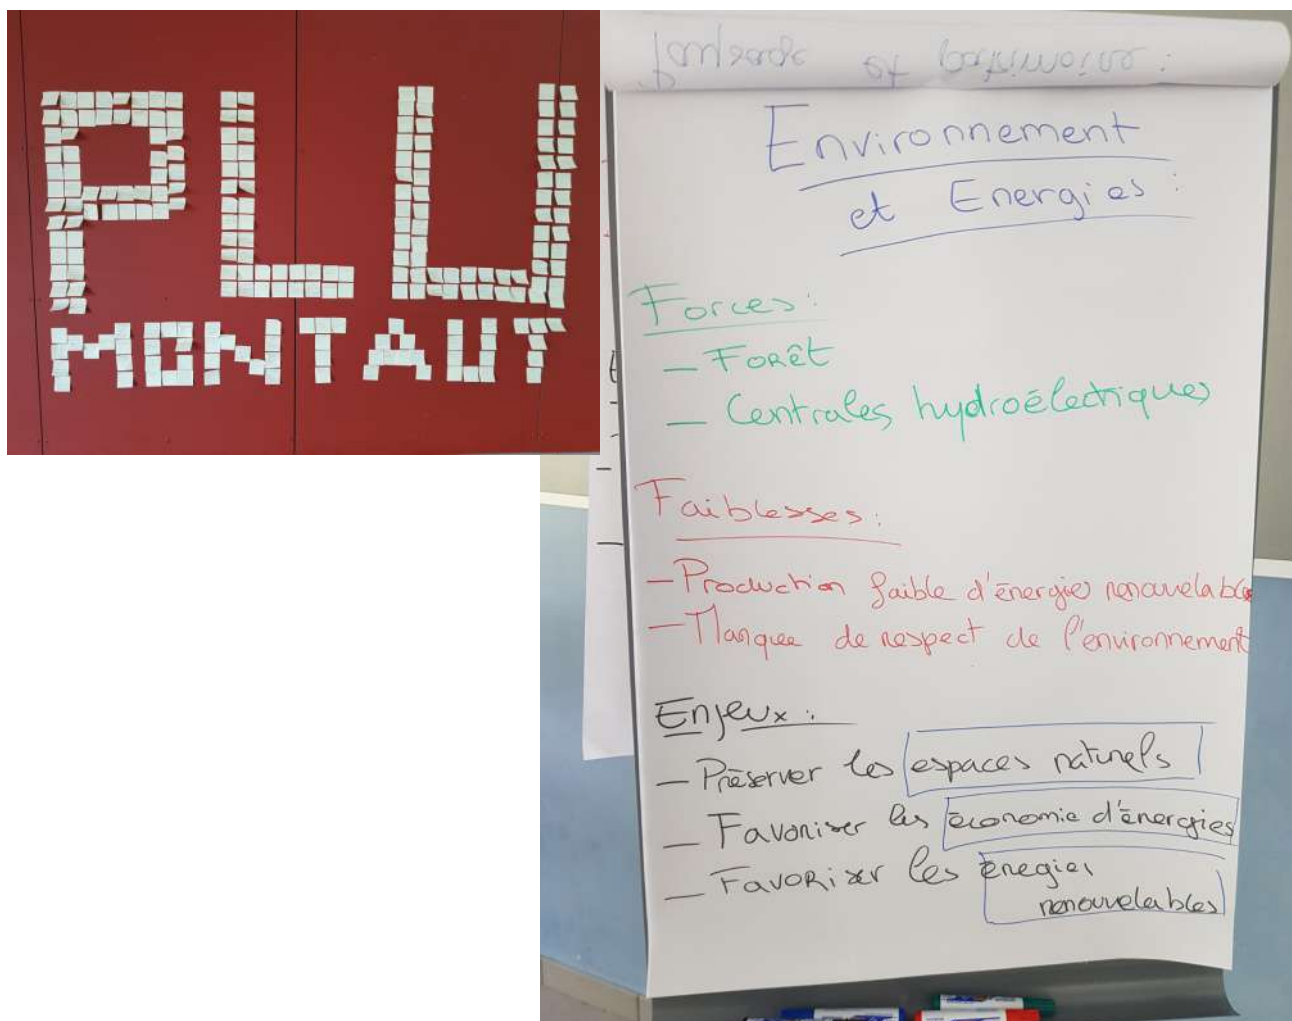 PLU
MONTAUT
et
Environnement
et Energies :
Forces :
- Forêt
- Centrales hydroélectriques
Faiblesses :
- Production faible d'énergies renouvelables
- Manque de respect de l'environnement
Enjeux :
- Préserver les espaces naturels
- Favoriser les économie d'énergies
- Favoriser les énegies
renouvelables